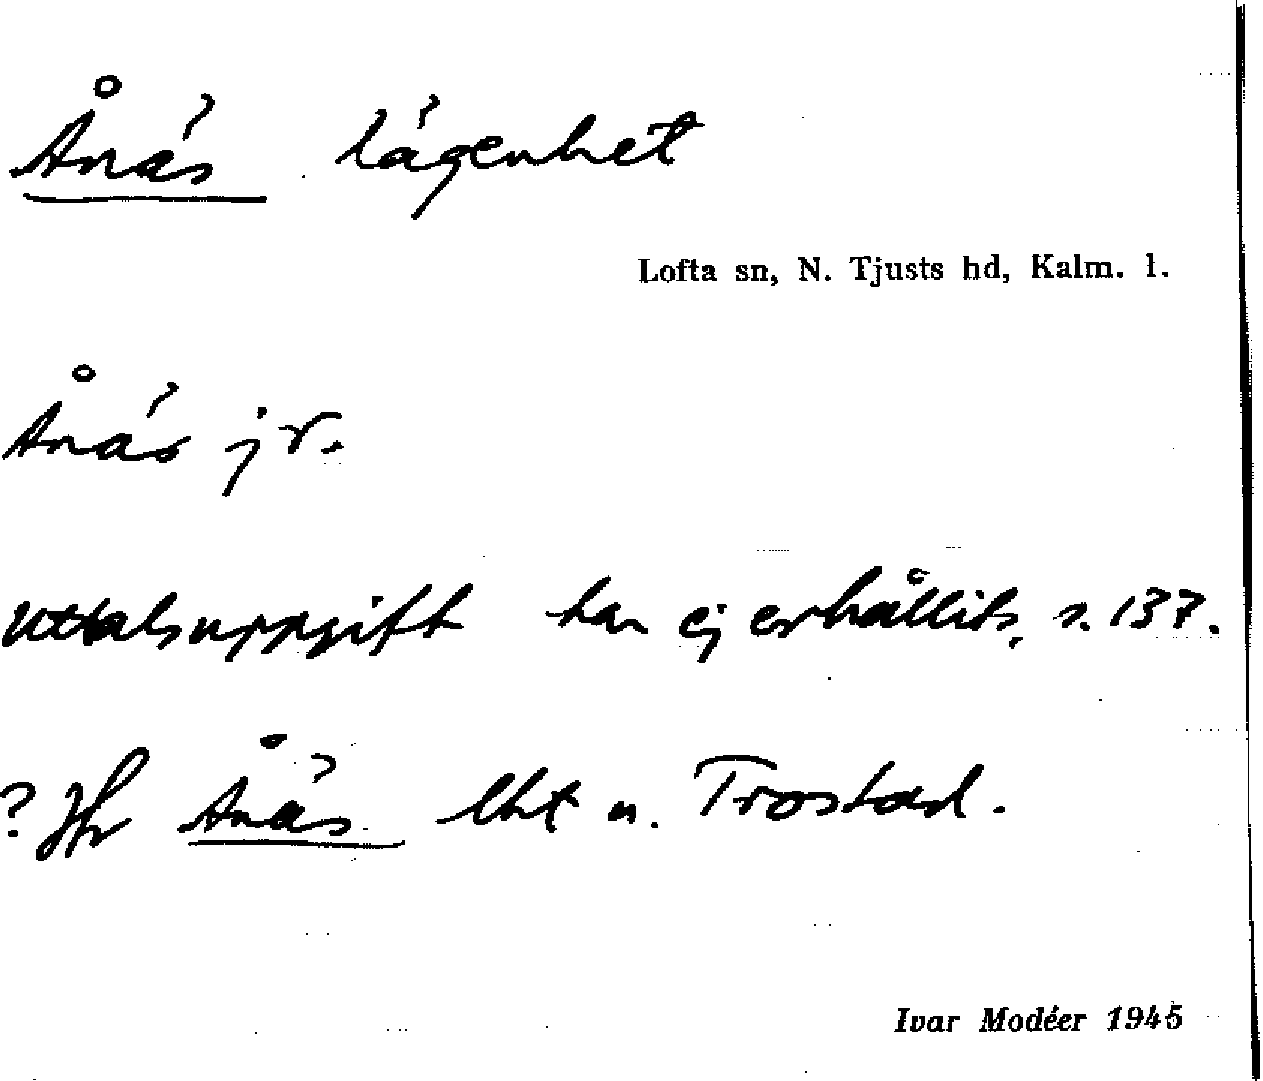 Ånäs lägenhet
Lofta sn, N. Tjusts hd, Kalm. l.
Ånäs jr.
Uttalsuppgift har ej erhållits, s. 137.
? Jfr Ånäs lht u. Trostad.
Ivar Modéer 1945